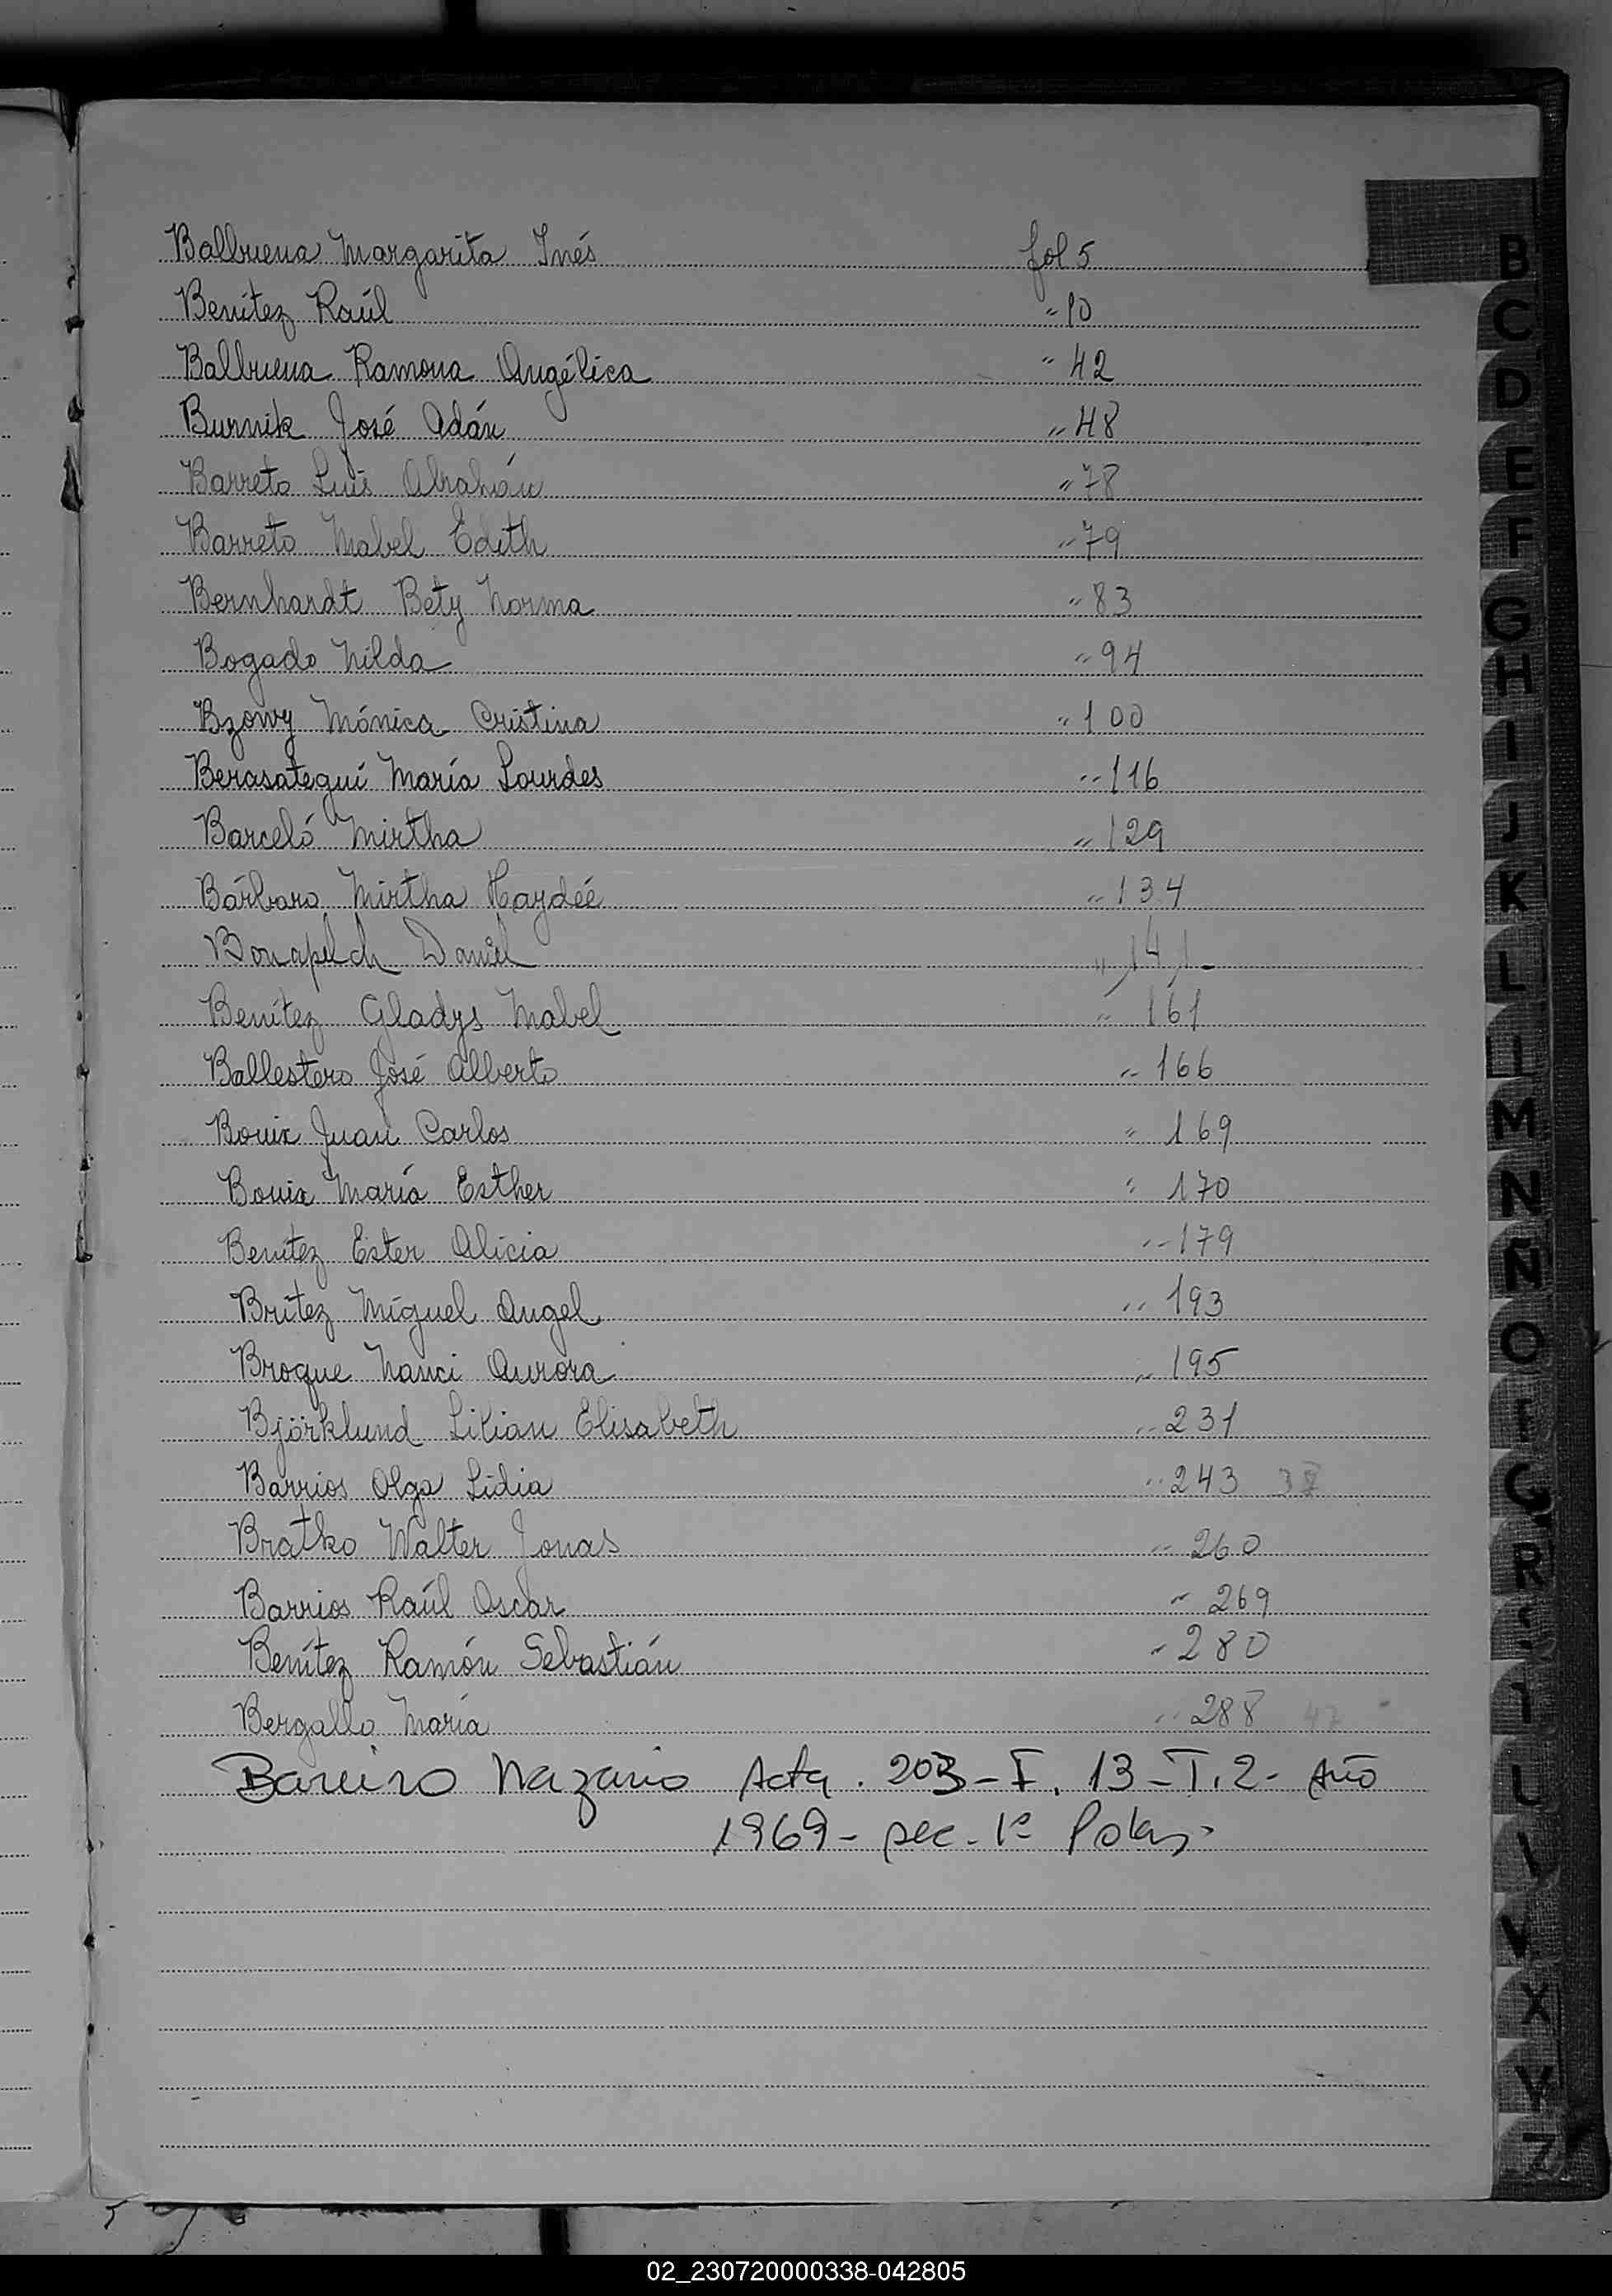 Balbuena Margarita Inés fol 5
Benítez Raúl " 10
Balbuena Ramona Angélica " 42
Burnik José Adán " 48
Barreto Luis Abrahán " 78
Barreto Mabel Edith " 79
Bernhardt Bety Norma " 83
Bogado Nilda " 94
Bzowy Mónica Cristina " 100
Berasategui María Lourdes " 116
Barceló Mirtha " 129
Bárbaro Mirtha Haydéé " 134
Bonapelch Daniel " 141-
Benítez Gladys Mabel " 161
Ballestero José Alberto " 166
Bouix Juan Carlos " 169
Bouix María Esther " 170
Benítez Ester Alicia " 179
Brítez Miguel Angel " 193
Broque Nanci Aurora " 195
Björklund Lilian Elisabeth " 231
Barrios Olga Lidia " 243
Bratko Walter Jonas " 260
Barrios Raúl Oscar " 269
Benítez Ramón Sebastián " 280
Bergallo María " 288 47
Bareiro Nazario Acta. 203-F. 13-T.2- Año
1969- sec. 1ª
B
C
D
E
F
G
H
I
J
K
L
M
N
Ñ
O
Q
R
S
T
U
V
X
Y
Z
02_230720000338-042805